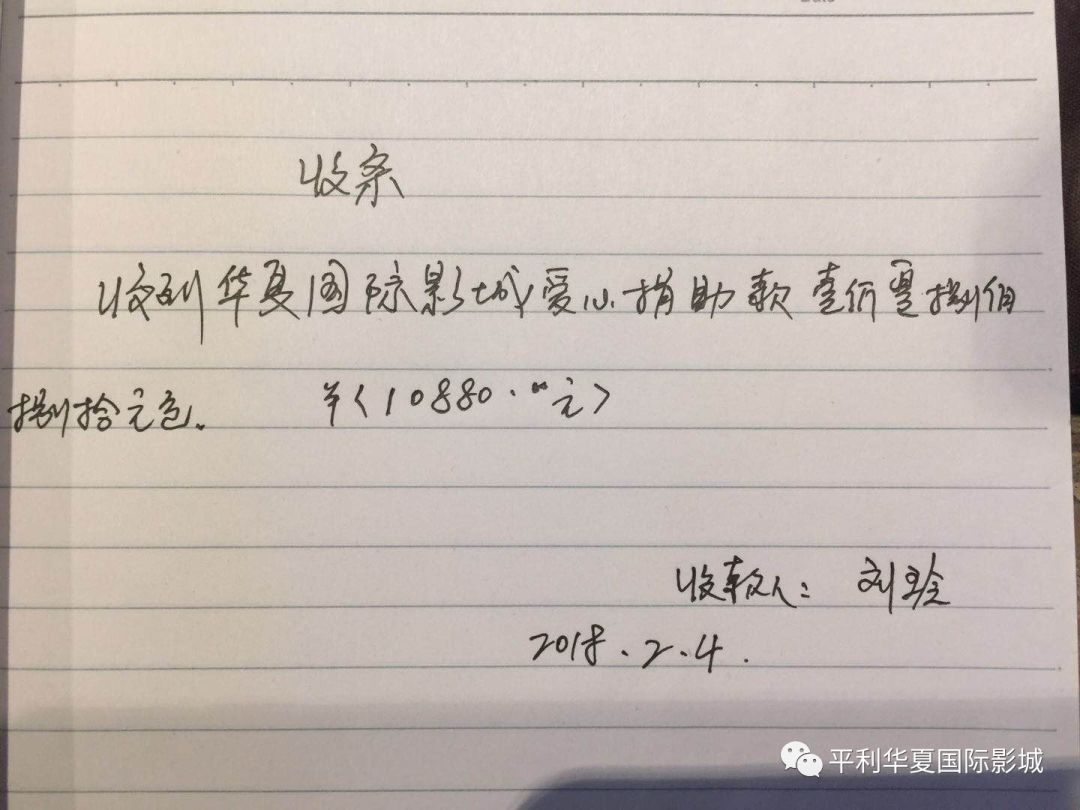 收条
收到华夏国际影城爱心捐助款壹仟零捌佰
捌拾元邑。
¥<10880.00元>
收款人：刘玲
2018.2.4.
平利华夏国际影城